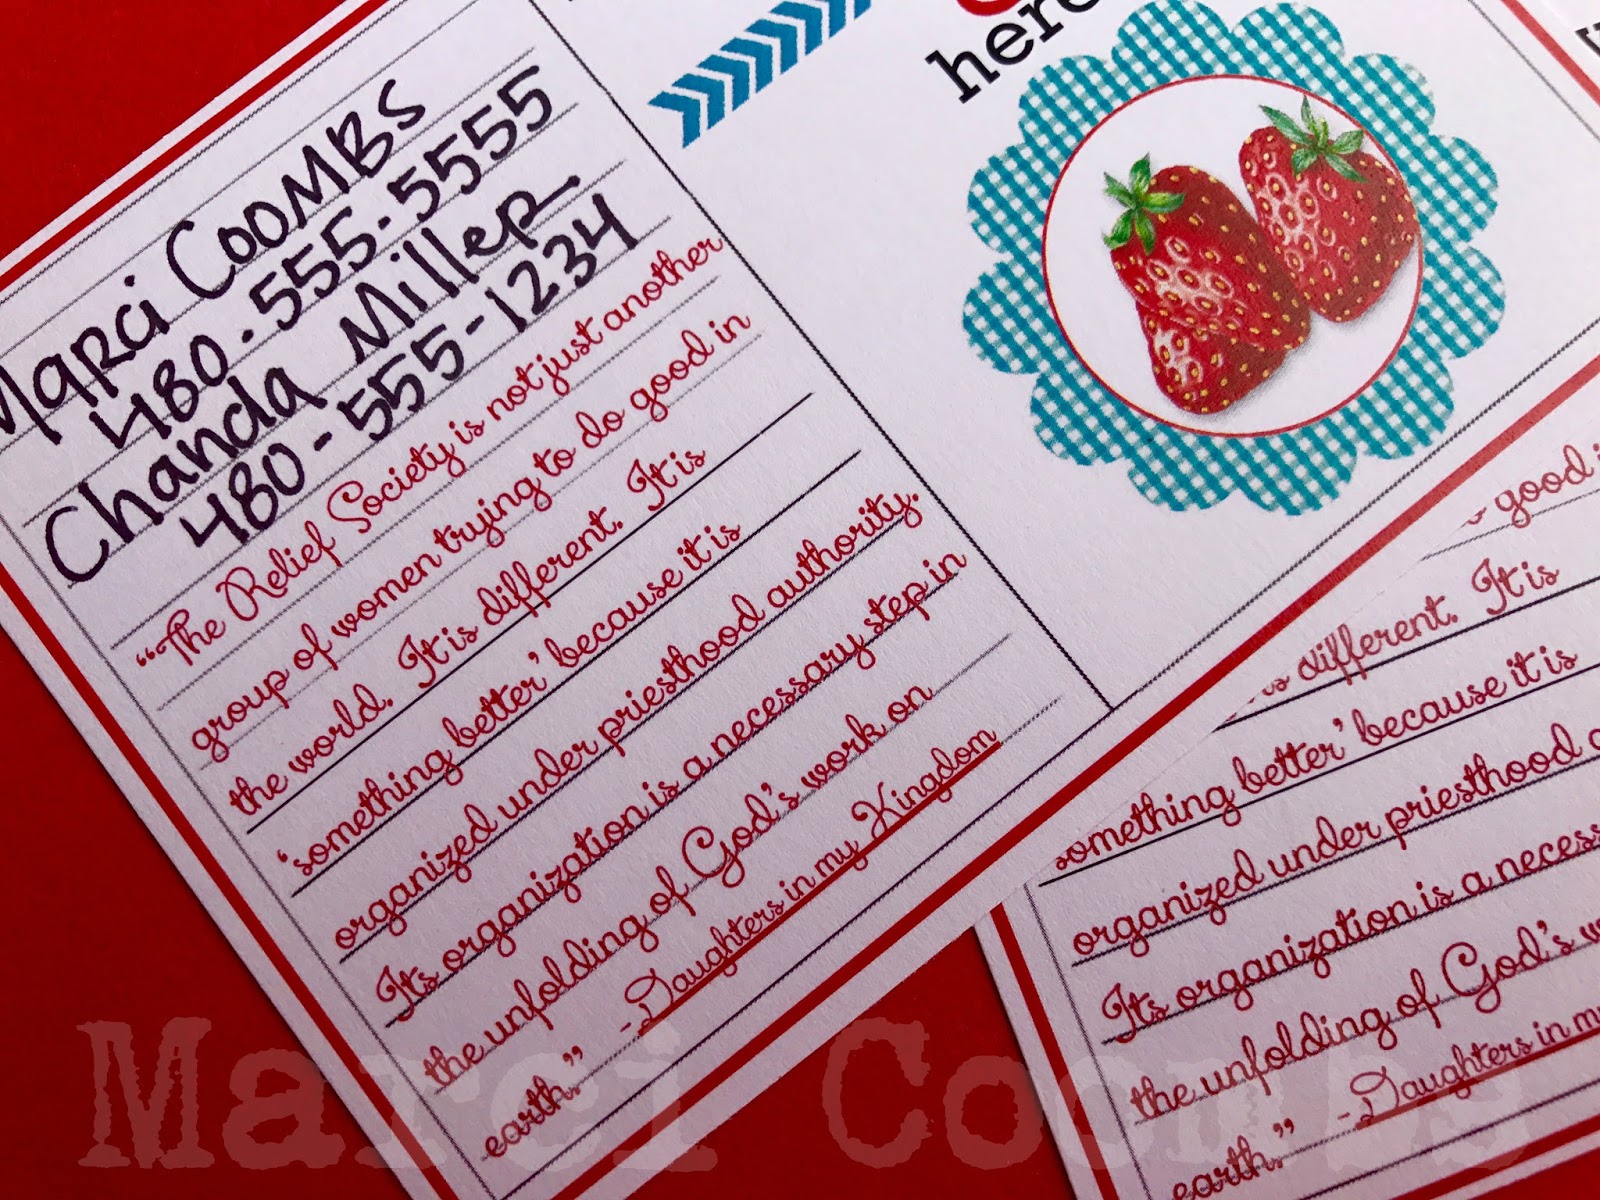 Marci Coombs
480-555-5555
Chanda Miller
480-555-1234
“The Relief Society is not just another
group of women trying to do good in
the world. It is different. It is
‘something better’ because it is
organized under priesthood authority.
Its organization is a necessary step in
the unfolding of God’s work on
earth.” -Daughters in my Kingdom
here
good
is different. It is
something better’ because it is
organized under priesthood
Its organization is a
the unfolding of God’s
earth.” -Daughters in
Marci Coombs